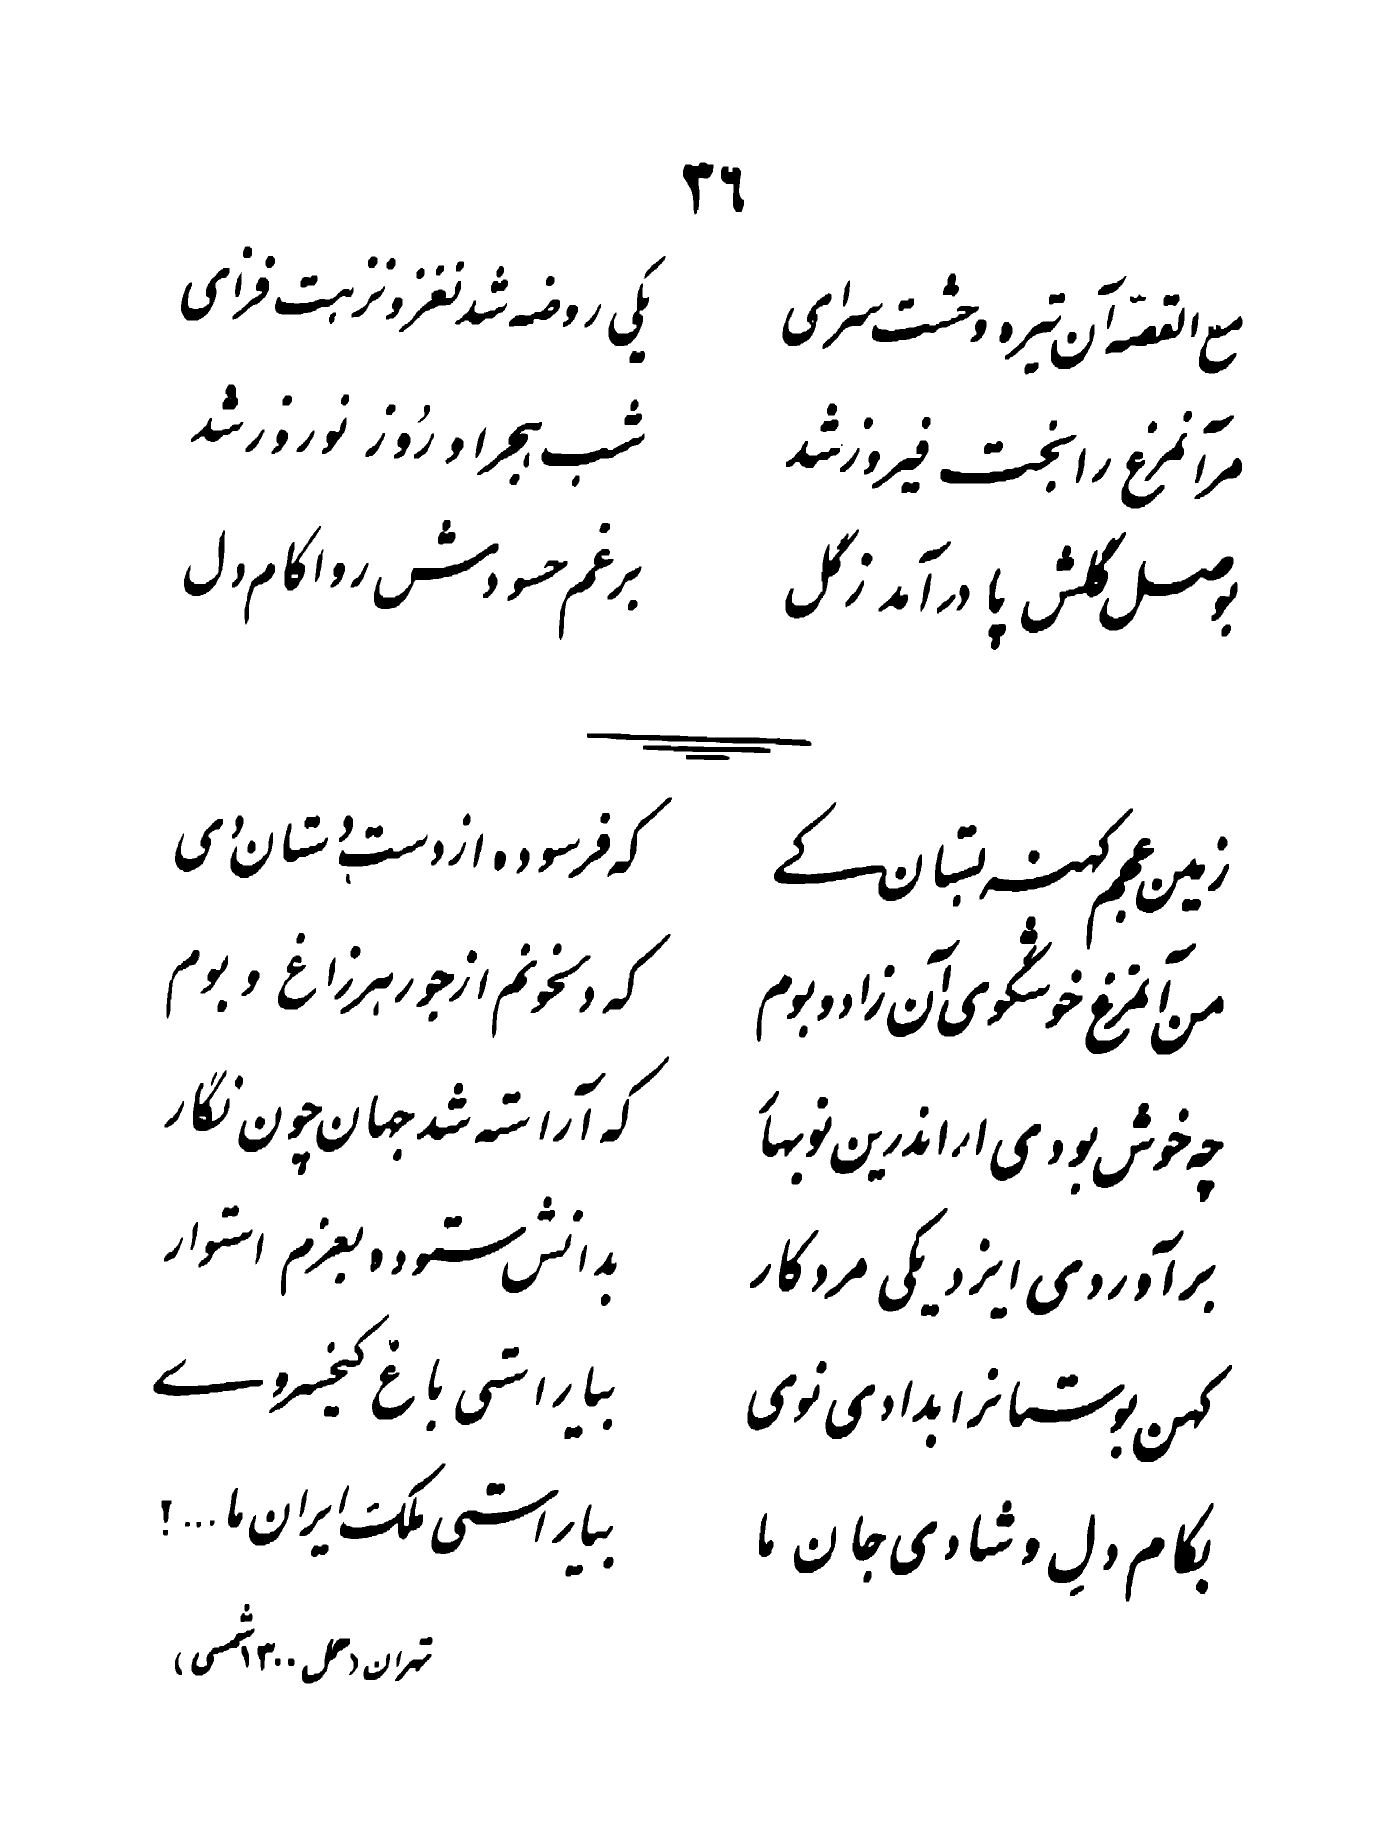 ۳٦
مع القصّه آن تیره وحشت سرای یکی روضه شد نغز و نزهت فزای
مر آنمرغ را بخت فیروز شد شب هجر او رُوز نوروز شد
بوصل گلش پا در آمد ز گل برغم حسودش روا کام دل
زمین عجم کهنه بستان کے که فرسوده از دستبُرستان دُی
من آنمرغ خوشگوی آن زاد و بوم که دلخونم از جور هر زاغ و بوم
چه خوش بودی ار اندرین نوبهار که آراسته شد جهان چون نگار
بر آوردی ایزد یکی مرد کار بدانش ستوده بعزم استوار
کهن بوستانرا بدادی نوی بیاراستی باغ کیخسروے
بکام دلِ و شادی جان ما بیاراستی ملکت ایران ما...!
تهران (حمل ۱۳۰۰شمسی)